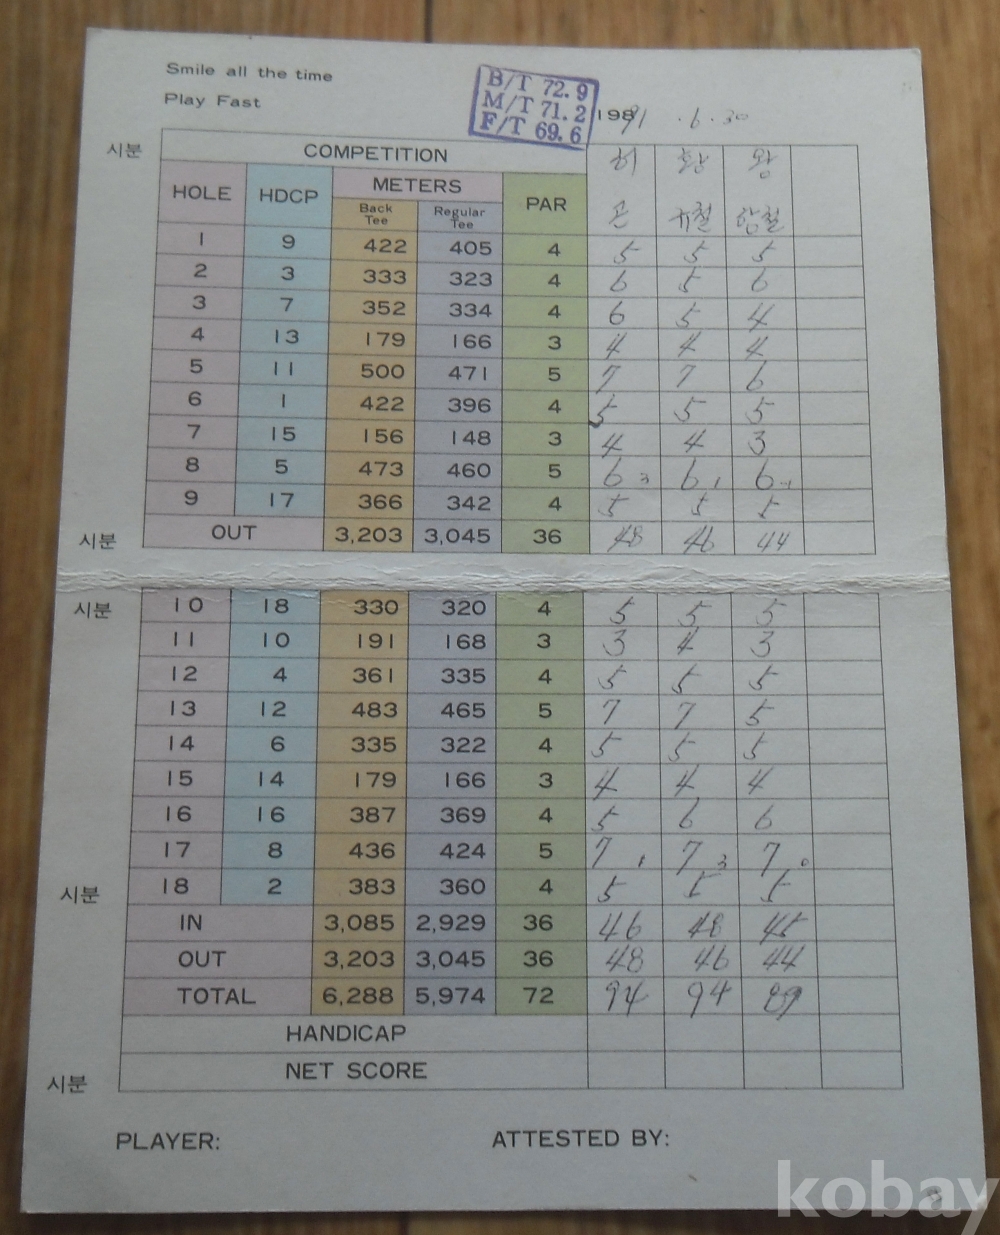 Smile all the time
Play Fast
B/T 72.9
M/T 71.2
F/T 69.6
198 91 . 6 . 30
시분
COMPETITION 허 황 왕
HOLE HDCP METERS PAR
Back Tee Regular Tee
1 9 422 405 4 5 5 5
2 3 333 323 4 6 5 6
3 7 352 334 4 6 5 4
4 13 179 166 3 4 4 4
5 11 500 471 5 7 7 6
6 1 422 396 4 5 5 5
7 15 156 148 3 4 4 3
8 5 473 460 5 6 3 6 1 6 -1
9 17 366 342 4 5 5 5
시분 OUT 3,203 3,045 36 48 46 44
시분 10 18 330 320 4 5 5 5
11 10 191 168 3 3 4 3
12 4 361 335 4 5 5 5
13 12 483 465 5 7 7 5
14 6 335 322 4 5 5 5
15 14 179 166 3 4 4 4
16 16 387 369 4 5 6 6
17 8 436 424 5 7 1 7 3 7 0
시분 18 2 383 360 4 5 5 5
IN 3,085 2,929 36 46 48 45
OUT 3,203 3,045 36 48 46 44
TOTAL 6,288 5,974 72 94 94 89
HANDICAP
시분 NET SCORE
PLAYER: ATTESTED BY:
kobay